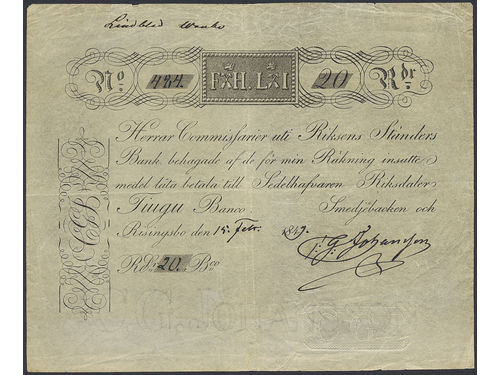 Lindbled
No 484. FÄH. LÄI 20 Rdr
Herrar Commissarier uti Riksens Ständers
Bank behagade af de för min Räkning insatte
medel låta betala till Sedelhafvaren Riksdaler
Tiugu Banco Smedjebacken och
Risingsbo den 15. Febr. 1849.
J. G. Johansson
Rdr 20. Bco